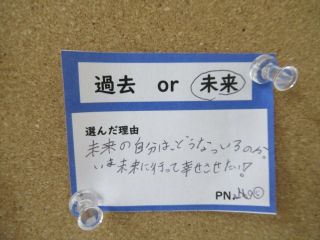 過去 or 未来
選んだ理由
未来の自分は、どうなっているのか。
いま未来に行って幸せさせたい!
PN